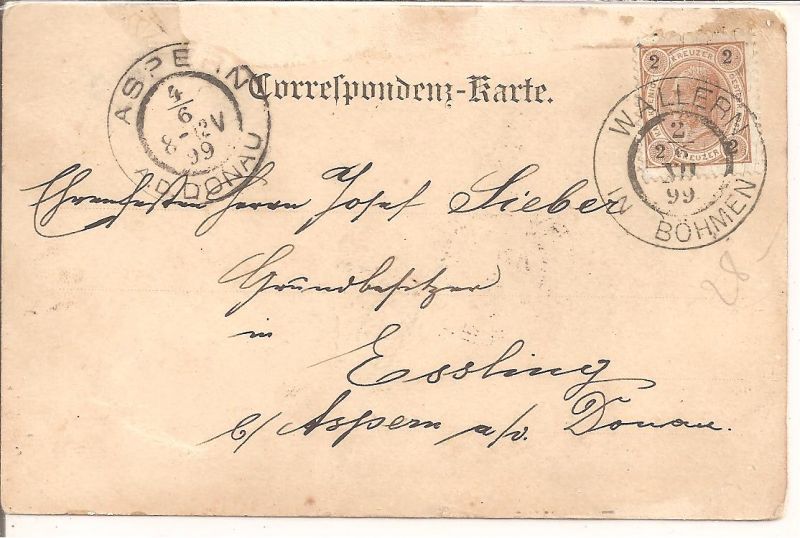 ASPERN
4/6
8-12V
99
A.D. DONAU
Correspondenz-Karte.
2 KREUZER 2
2 KREUZER 2
WALLERN
2/6
XII
99
IN BÖHMEN
Ehrenfesten Herrn Josef Sieber
Grundbesitzer
in
Essling
b/ Aspern a/d. Donau.
28.-